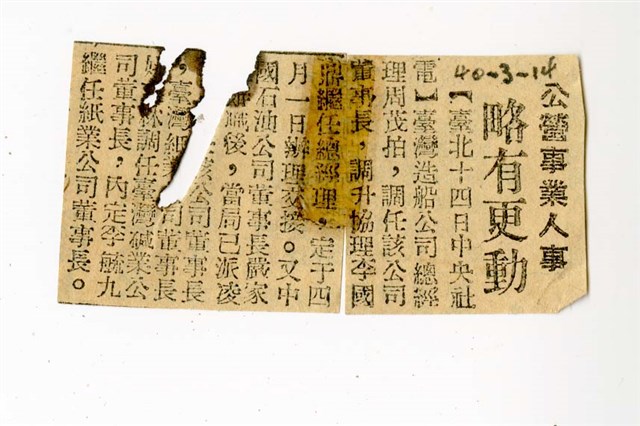 公營事業人事
略有更動
40-3-14
【臺北十四日中央社
電】臺灣造船公司總經
理周茂柏，調任該公司
董事長，調升協理李國
鼎繼任總經理，定于四
月一日辦理交接。又中
國石油公司董事長嚴家
職後，當局已派凌
該公司董事長
，臺灣紙業 司董事長
林調任臺灣碱業公
司董事長，內定李毓九
繼任紙業公司董事長。